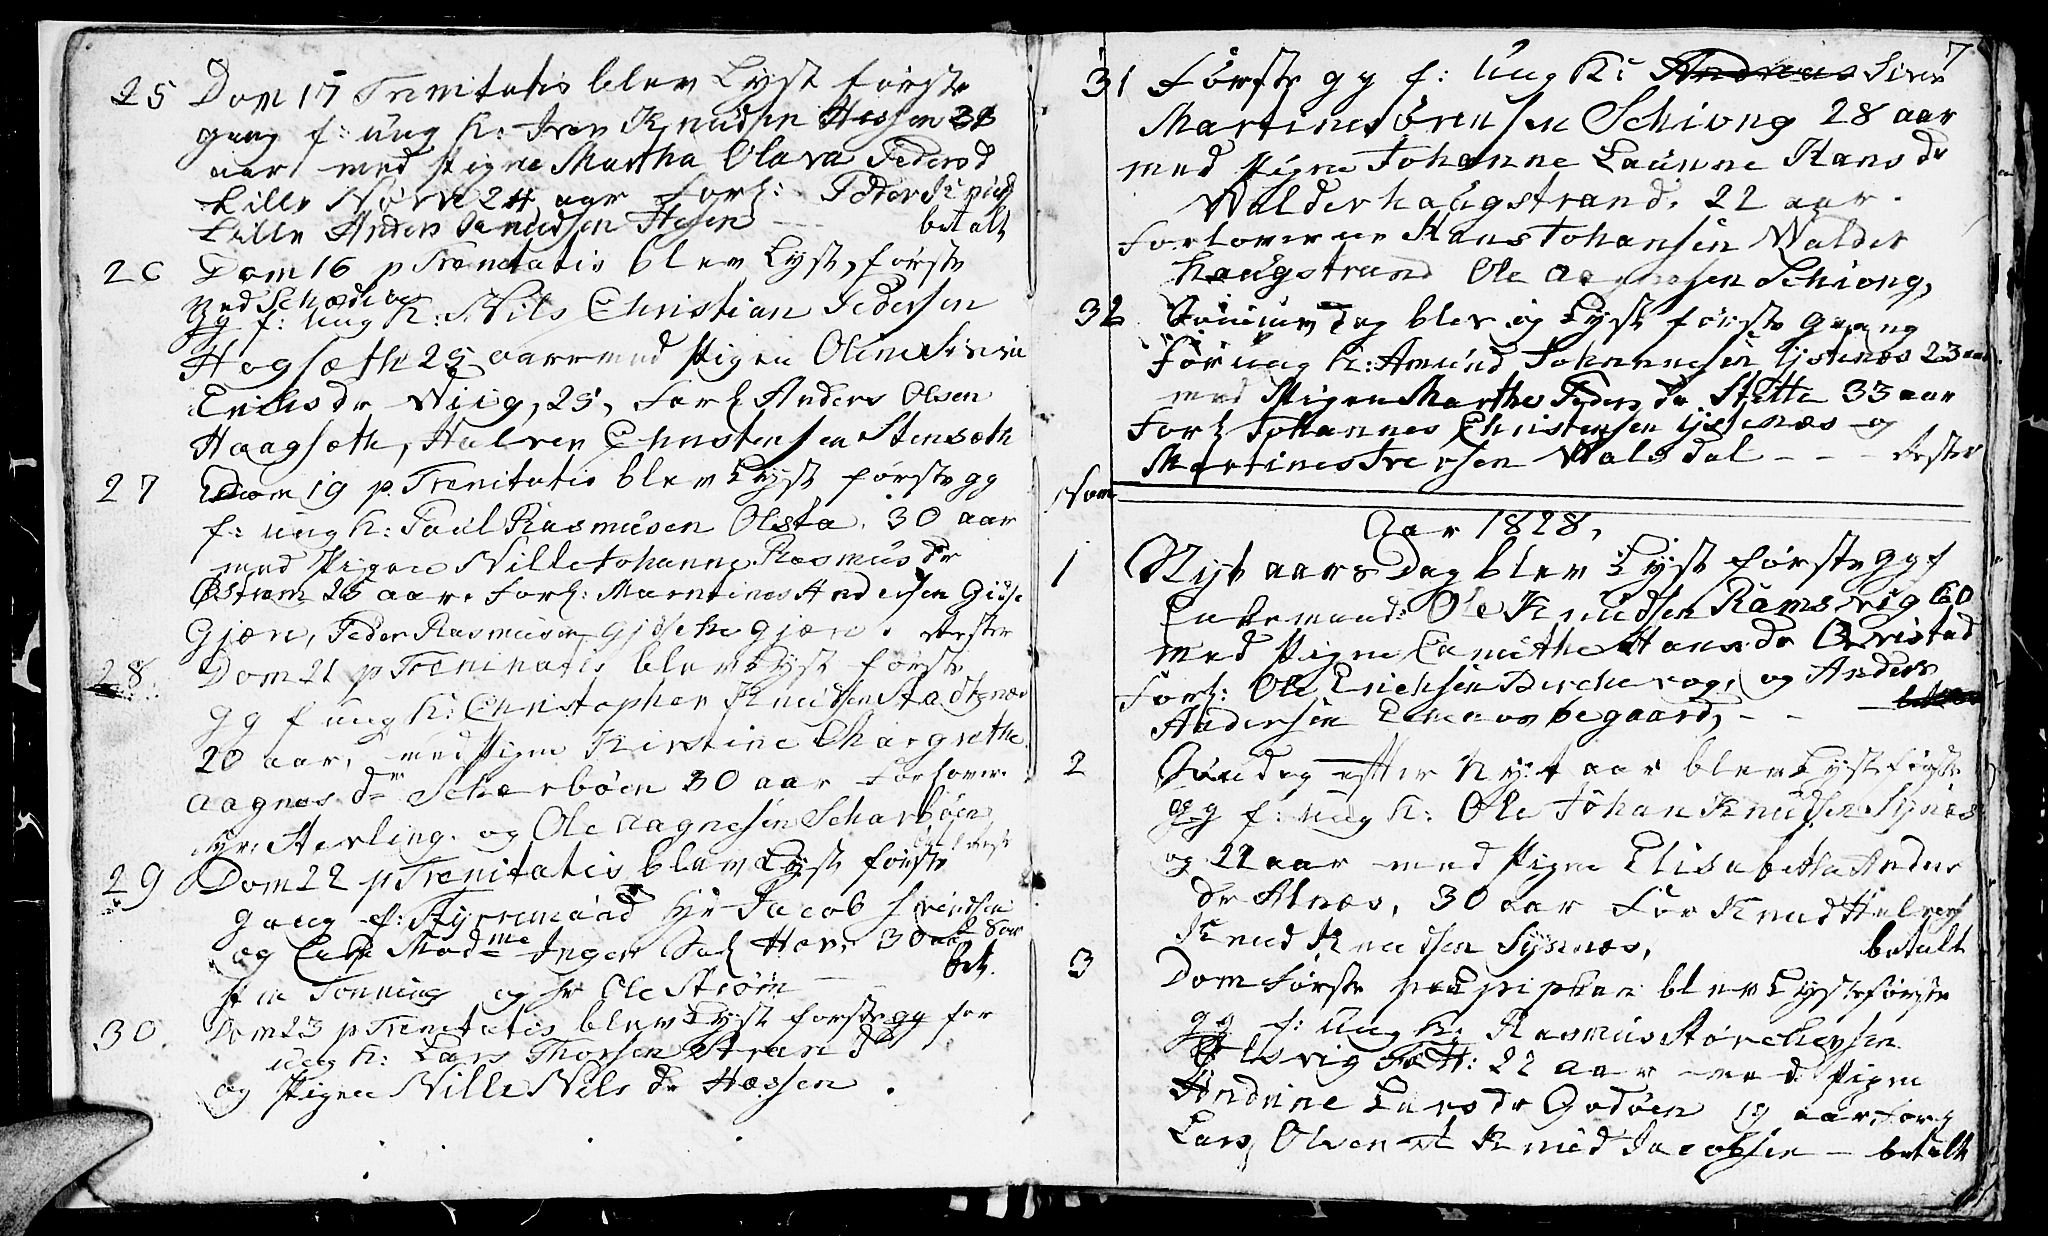 25 Dom 17 Trenitatis blev Lyst første
gang f: Ung K: Iver Knudsen Hessen 31
aar med Pigen Martha Olava Pedersd
Lille Nørve 24 aar Forl: Peder Knuds
Lille Anders Knudsen Hesen - - betalt
26 Dom 16 p Trenitatis blev Lyst, første
Ved
gg f: Ung K: Nils Christian Pedersen
Hogsæth 25 aar med Pigen Oline
Erichsdr Wiig, 25, Forl Anders Olsen
Haagsæth, Halver Christensen Stensæth
27 Dom 19 p. Trenitatis blev Lyst første gg
f: Ung K: Poul Rasmusen Olsta, 30 aar
med Pigen Nille Johanne Rasmusdr
Østrem 25 aar. Forl: Martines Andersen
Gjøen, Peder Rasmusen Gjøen. Rester
28. Dom 21 p Treninatis blev Lyst første
gg f Ung K: Christopher Knudsen Stadsnæs
20 aar, med Pigen Kirstine Margrethe
Aagnes dr Scharbøen 30 aar Forlover:
Hr: Herling. og Ole Aagnesen Scharbøen
29 Dom 22 p Trenitatis blev Lyst første
gang f: Styremand Hr Jacob Svendsen
og Enke Madme Inger Sal Havn 30 aar 28 aar
Tonning og Hr Ole Strøm - bet.
30. Dom 23 p Trenitatis blev Lyst første gg for
ung K: Lars Thorsen Strand
og Pigen Nille Nilsdr Hæssen.
7
31 Første gg f: Ung K: Andreas Siver
Martin Sørensen Schiong 28 aar
med Pigen Johanne Laurine Hansdr
Walderhaugstrand. 22 aar.
Forloverne Hans Johansen Walder
haugstrand Ole Aagnesen Schiong,
32 Samme Dag blev og Lyst første gaang
For ung K: Amund Johannesen Ystenæs 23 aar
med Pigen Marthe Pedersdr Slette 33 aar
Forl Johannes Christensen Ystenæs og
Martines Iversen Walsdal - - - Rester
Aar 1828,
1 Nyt aars Dag blev Lyst første gg f
Enkemand: Ole Knudsen Ramsvig 60
med Pigen Hansdr Qvistad
Forl: Ole Erichsen og Anders
Andersen - - -
2 Søndag efter Nyt aar blev Lyst første
gg f: Ung K: Ole Johan Knudsen Synes
og 22 aar med Pigen Elisabetha Anders
dr Alnæs, 30 aar For Knud
Knud Knudsen Sysnæs, betalt
3 Dom første p Epiphan blev Lyst første
gg f: Ung K: Rasmus
22 aar med Pigen
Andrine Larsdr Godøen 19 aar Forl
Lars Olsen et Knud Jacobsen - betalt